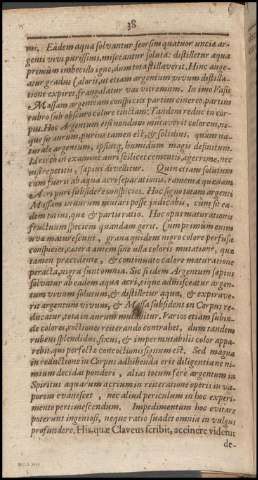 38
me. Eadem aqua solvantur seorsim quatuor unciæ ar-
genti vivi purissimi, misceantur soluta: distilletur aqua
primum imbecillo igne, dum tota stillaverit. Hinc auge-
atur gradus caloris, ut etiam argentum vivum distilla-
tione expiret, frangatur vas vitreum. In imo Vasis
Massam argenteam conspicies partim cinereo, partim
rubro sub obscuro colore tinctam: Tandem reduc in cor-
pus. Hoc Argentum etsi nondum mutaverit colorem, us-
que so aurum, purius tamen est, & solidius, quam na-
turale argentum, ipsiusq; humidum magis definitum.
Ideo in examine auri scilicet cementis, ægerrime, nec
nisi repetitis, sæpius devastetur. Quin etiam solutum
cum fuerit ab aqua acri separationis, tamen quædam
Auri pars subsidere conspicies. Hoc signo totam argenti
Massam in aurum mutari posse judicabis, cum sit ea-
dem totius, quæ & partis ratio. Hoc opus maturationis
fructuum speciem quandam gerit. Cum primum enim
uva maturescunt, grana quædam nigro colore perfusa
conspicies, cætera autem sine ulla coloris mutatione, quæ
tamen præcedente, & continuato calore maturatione
peracta, nigra sunt omnia. Sic si idem Argentum sæpius
solvatur ab eadem aqua acri, eiq; adhibeatur argen-
tum vivum solutum, & distilletur aqua, & expirave-
rit argentum vivum, & Massa subsidens in Corpus re-
ducatur, tota in aurum mutabitur. Varios etiam subin-
de colores, coctione reiterando contrahet, dum tandem
rubeus splendidus, fixus, & impermutabilis color appa-
rebit, qui perfectæ concoctionis signum est. Sed magna
in reductione in Corpus adhibenda erit diligentia, ne ni-
mium decidat pondere, alias totum fere argentum in
Spiritus aquarum acrium in reiteratione operis in va-
porem evanescet, nec aliud periculum in hoc experi-
mento pertimescendum. Impedimentum hoc evitare
poterunt ingeniosi, neque ratio suadet omnia in vulgus
profundere. Hisq; quæ Claveus scribit, accinere videtur
de-